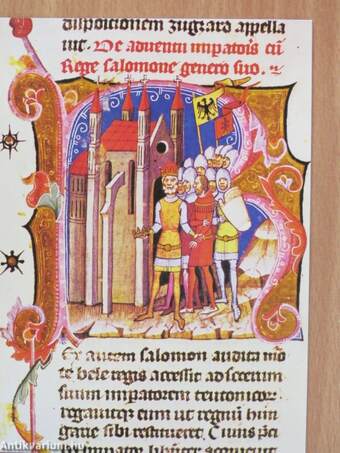 dispositionem zugrard appella
uit. De adventu imperatoris cu
Rege salomone genero suo.
Ex autem salomon audita mo
te bele regis accessit ad socerum
suum imperatorem teutonicor
rogavitque eum ut regnum hun
garie sibi restitueret. Cuius peti
Antikvarium.hu